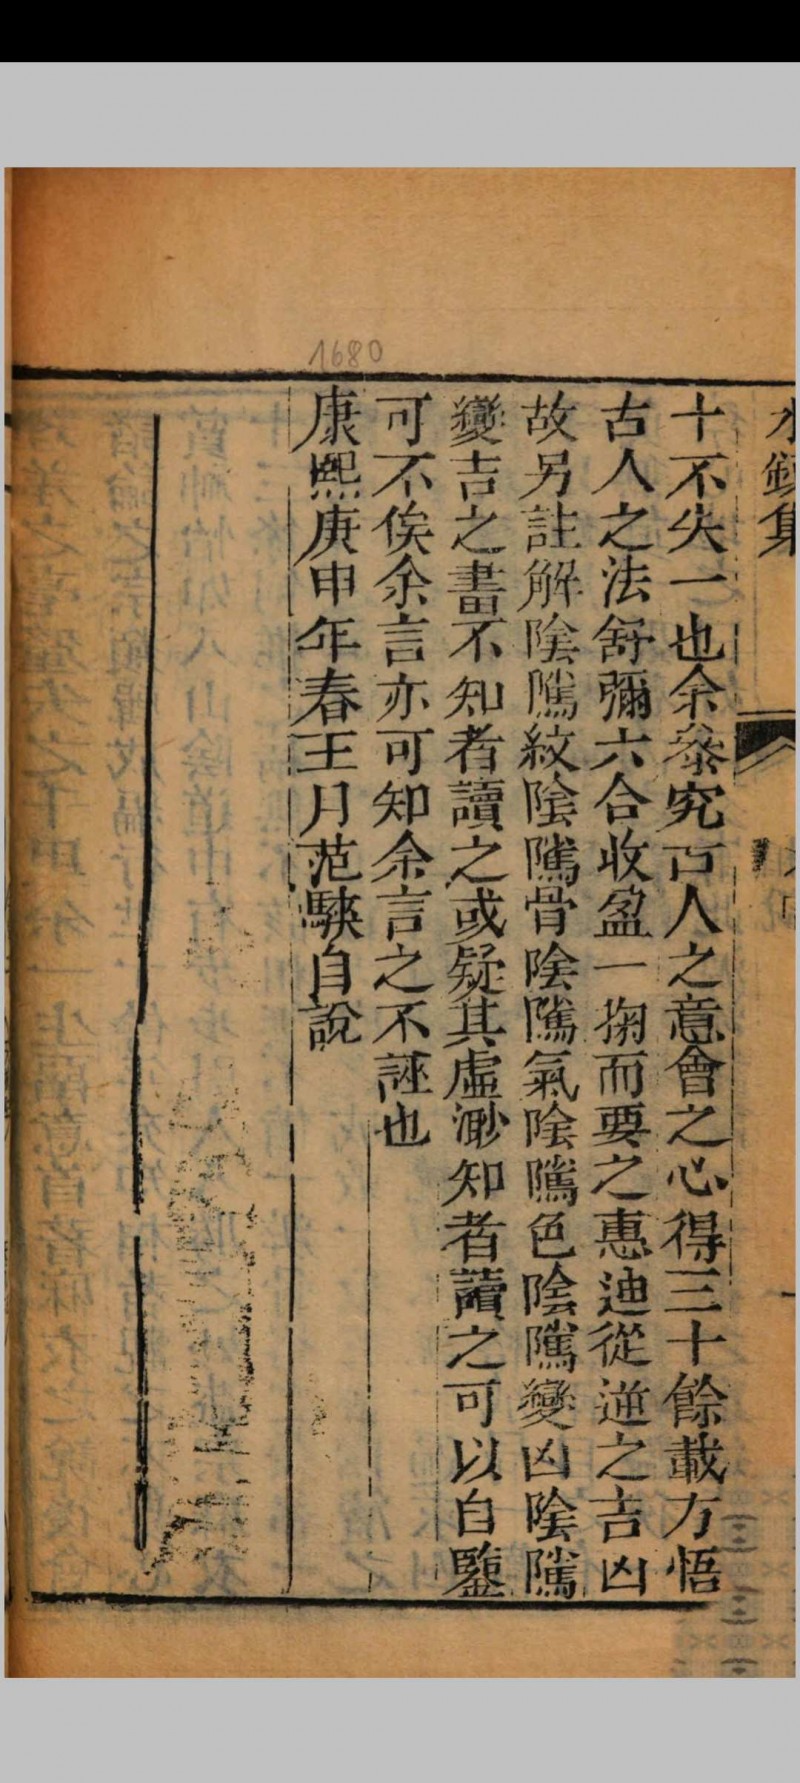 水鏡集
十不失一也余叅究古人之意會之心得三十餘載方悟
古人之法舒彌六合收盈一掬而要之惠迪從逆之吉凶
故另註解陰隲紋陰隲骨陰隲氣陰隲色陰隲變凶陰隲
變吉之書不知者讀之或疑其虛渺知者讀之可以自鑒
可不俟余言亦可知余言之不誣也
康熙庚申年春王月范騋自說
1680